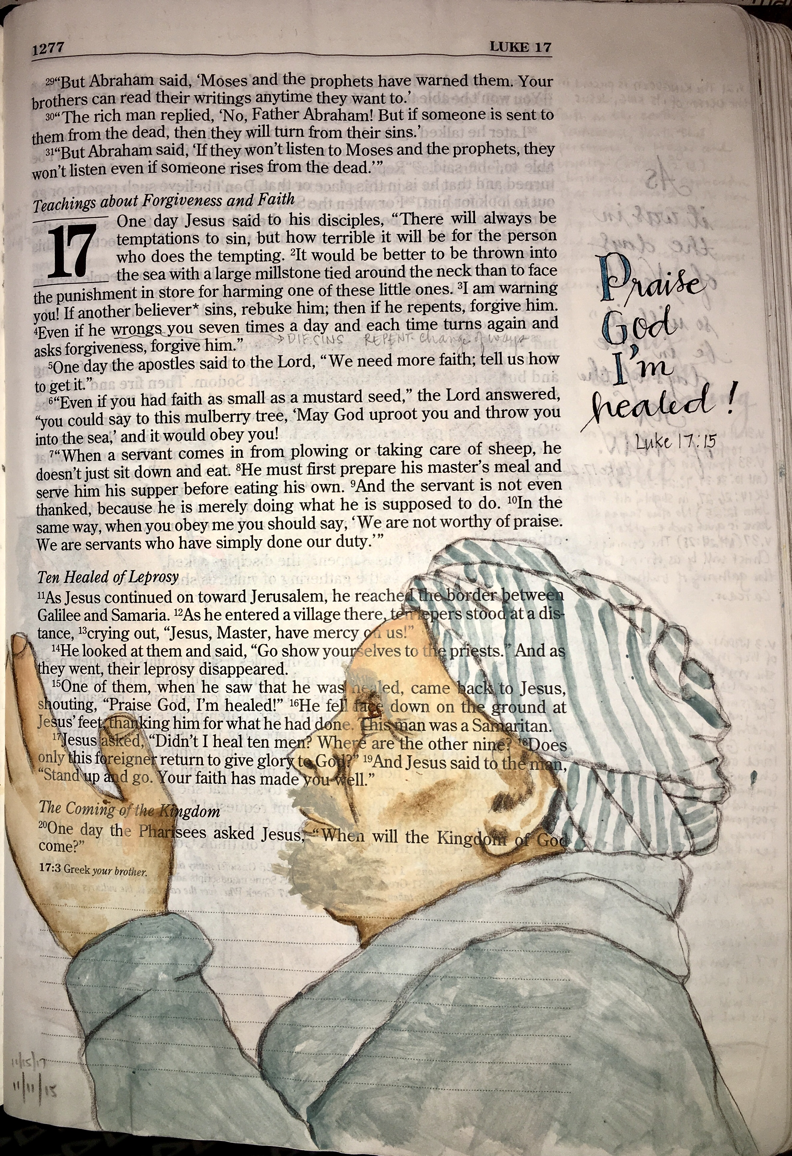 1277 LUKE 17
29“But Abraham said, ‘Moses and the prophets have warned them. Your
brothers can read their writings anytime they want to.’
30“The rich man replied, ‘No, Father Abraham! But if someone is sent to
them from the dead, then they will turn from their sins.’
31“But Abraham said, ‘If they won’t listen to Moses and the prophets, they
won’t listen even if someone rises from the dead.’”
Teachings about Forgiveness and Faith
17 One day Jesus said to his disciples, “There will always be
temptations to sin, but how terrible it will be for the person
who does the tempting. 2It would be better to be thrown into
the sea with a large millstone tied around the neck than to face
the punishment in store for harming one of these little ones. 3I am warning
you! If another believer* sins, rebuke him; then if he repents, forgive him.
4Even if he wrongs you seven times a day and each time turns again and
asks forgiveness, forgive him.”
5One day the apostles said to the Lord, “We need more faith; tell us how
to get it.”
6“Even if you had faith as small as a mustard seed,” the Lord answered,
“you could say to this mulberry tree, ‘May God uproot you and throw you
into the sea,’ and it would obey you!
7“When a servant comes in from plowing or taking care of sheep, he
doesn’t just sit down and eat. 8He must first prepare his master’s meal and
serve him his supper before eating his own. 9And the servant is not even
thanked, because he is merely doing what he is supposed to do. 10In the
same way, when you obey me you should say, ‘We are not worthy of praise.
We are servants who have simply done our duty.’”
Ten Healed of Leprosy
11As Jesus continued on toward Jerusalem, he reached the border between
Galilee and Samaria. 12As he entered a village there, ten lepers stood at a dis-
tance, 13crying out, “Jesus, Master, have mercy on us!”
14He looked at them and said, “Go show yourselves to the priests.” And as
they went, their leprosy disappeared.
15One of them, when he saw that he was healed, came back to Jesus,
shouting, “Praise God, I’m healed!” 16He fell face down on the ground at
Jesus’ feet, thanking him for what he had done. This man was a Samaritan.
17Jesus asked, “Didn’t I heal ten men? Where are the other nine? 18Does
only this foreigner return to give glory to God?” 19And Jesus said to the man,
“Stand up and go. Your faith has made you well.”
The Coming of the Kingdom
20One day the Pharisees asked Jesus, “When will the Kingdom of God
come?”
17:3 Greek your brother.
Praise
God
I’m
healed!
Luke 17:15
11/15/17
11/11/15